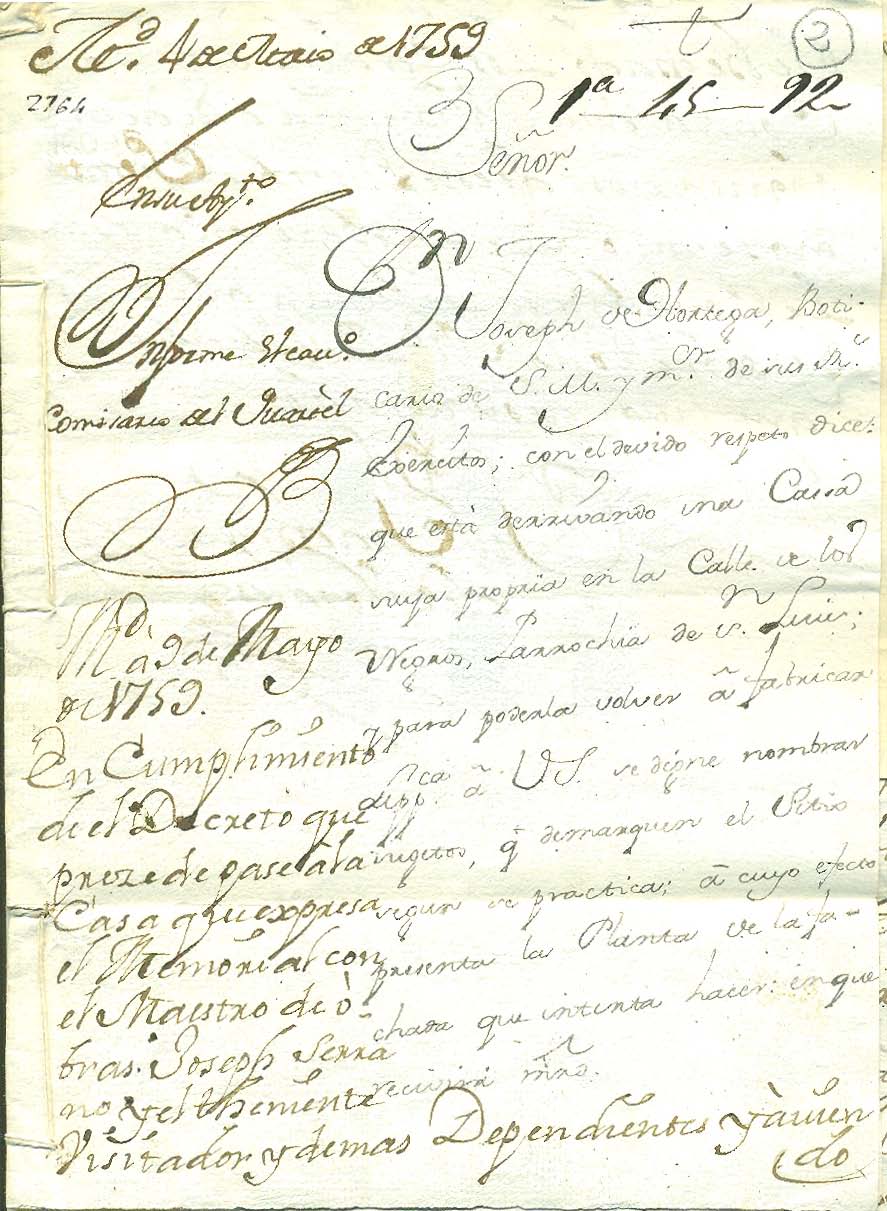 M.d 4 de Maio de 1759
2
2764
1a 45 92
Señor.
En su Ayto.
Informe el cavo.
Comisario del Quartèl
Dn Joseph de Hortega, Boti-
cario de S. M. y mor. de sus Rs.
Exercitos; con el devido respeto dice:
que està derrivando una Cassa
suya propria en la Calle de los
Negros, Parrochia de Sn. Luis;
y para poderla volver à fabricar
suppca à VS. se digne nombrar
sugetos, q demarquen el Sitio
segun se practica; à cuyo efecto
presenta la Planta de la fa-
chada que intenta hacer: en que
recivirà mrd.
Md à 9 de Mayo
de 1759.
En Cumplimiento
de el Decreto que
prezede pase à la
Casa que expresa
el Memorial con
el Maestro de ò-
bras. Joseph Serra
no y el theniente
Visitador y demas Dependientes y àvien
do